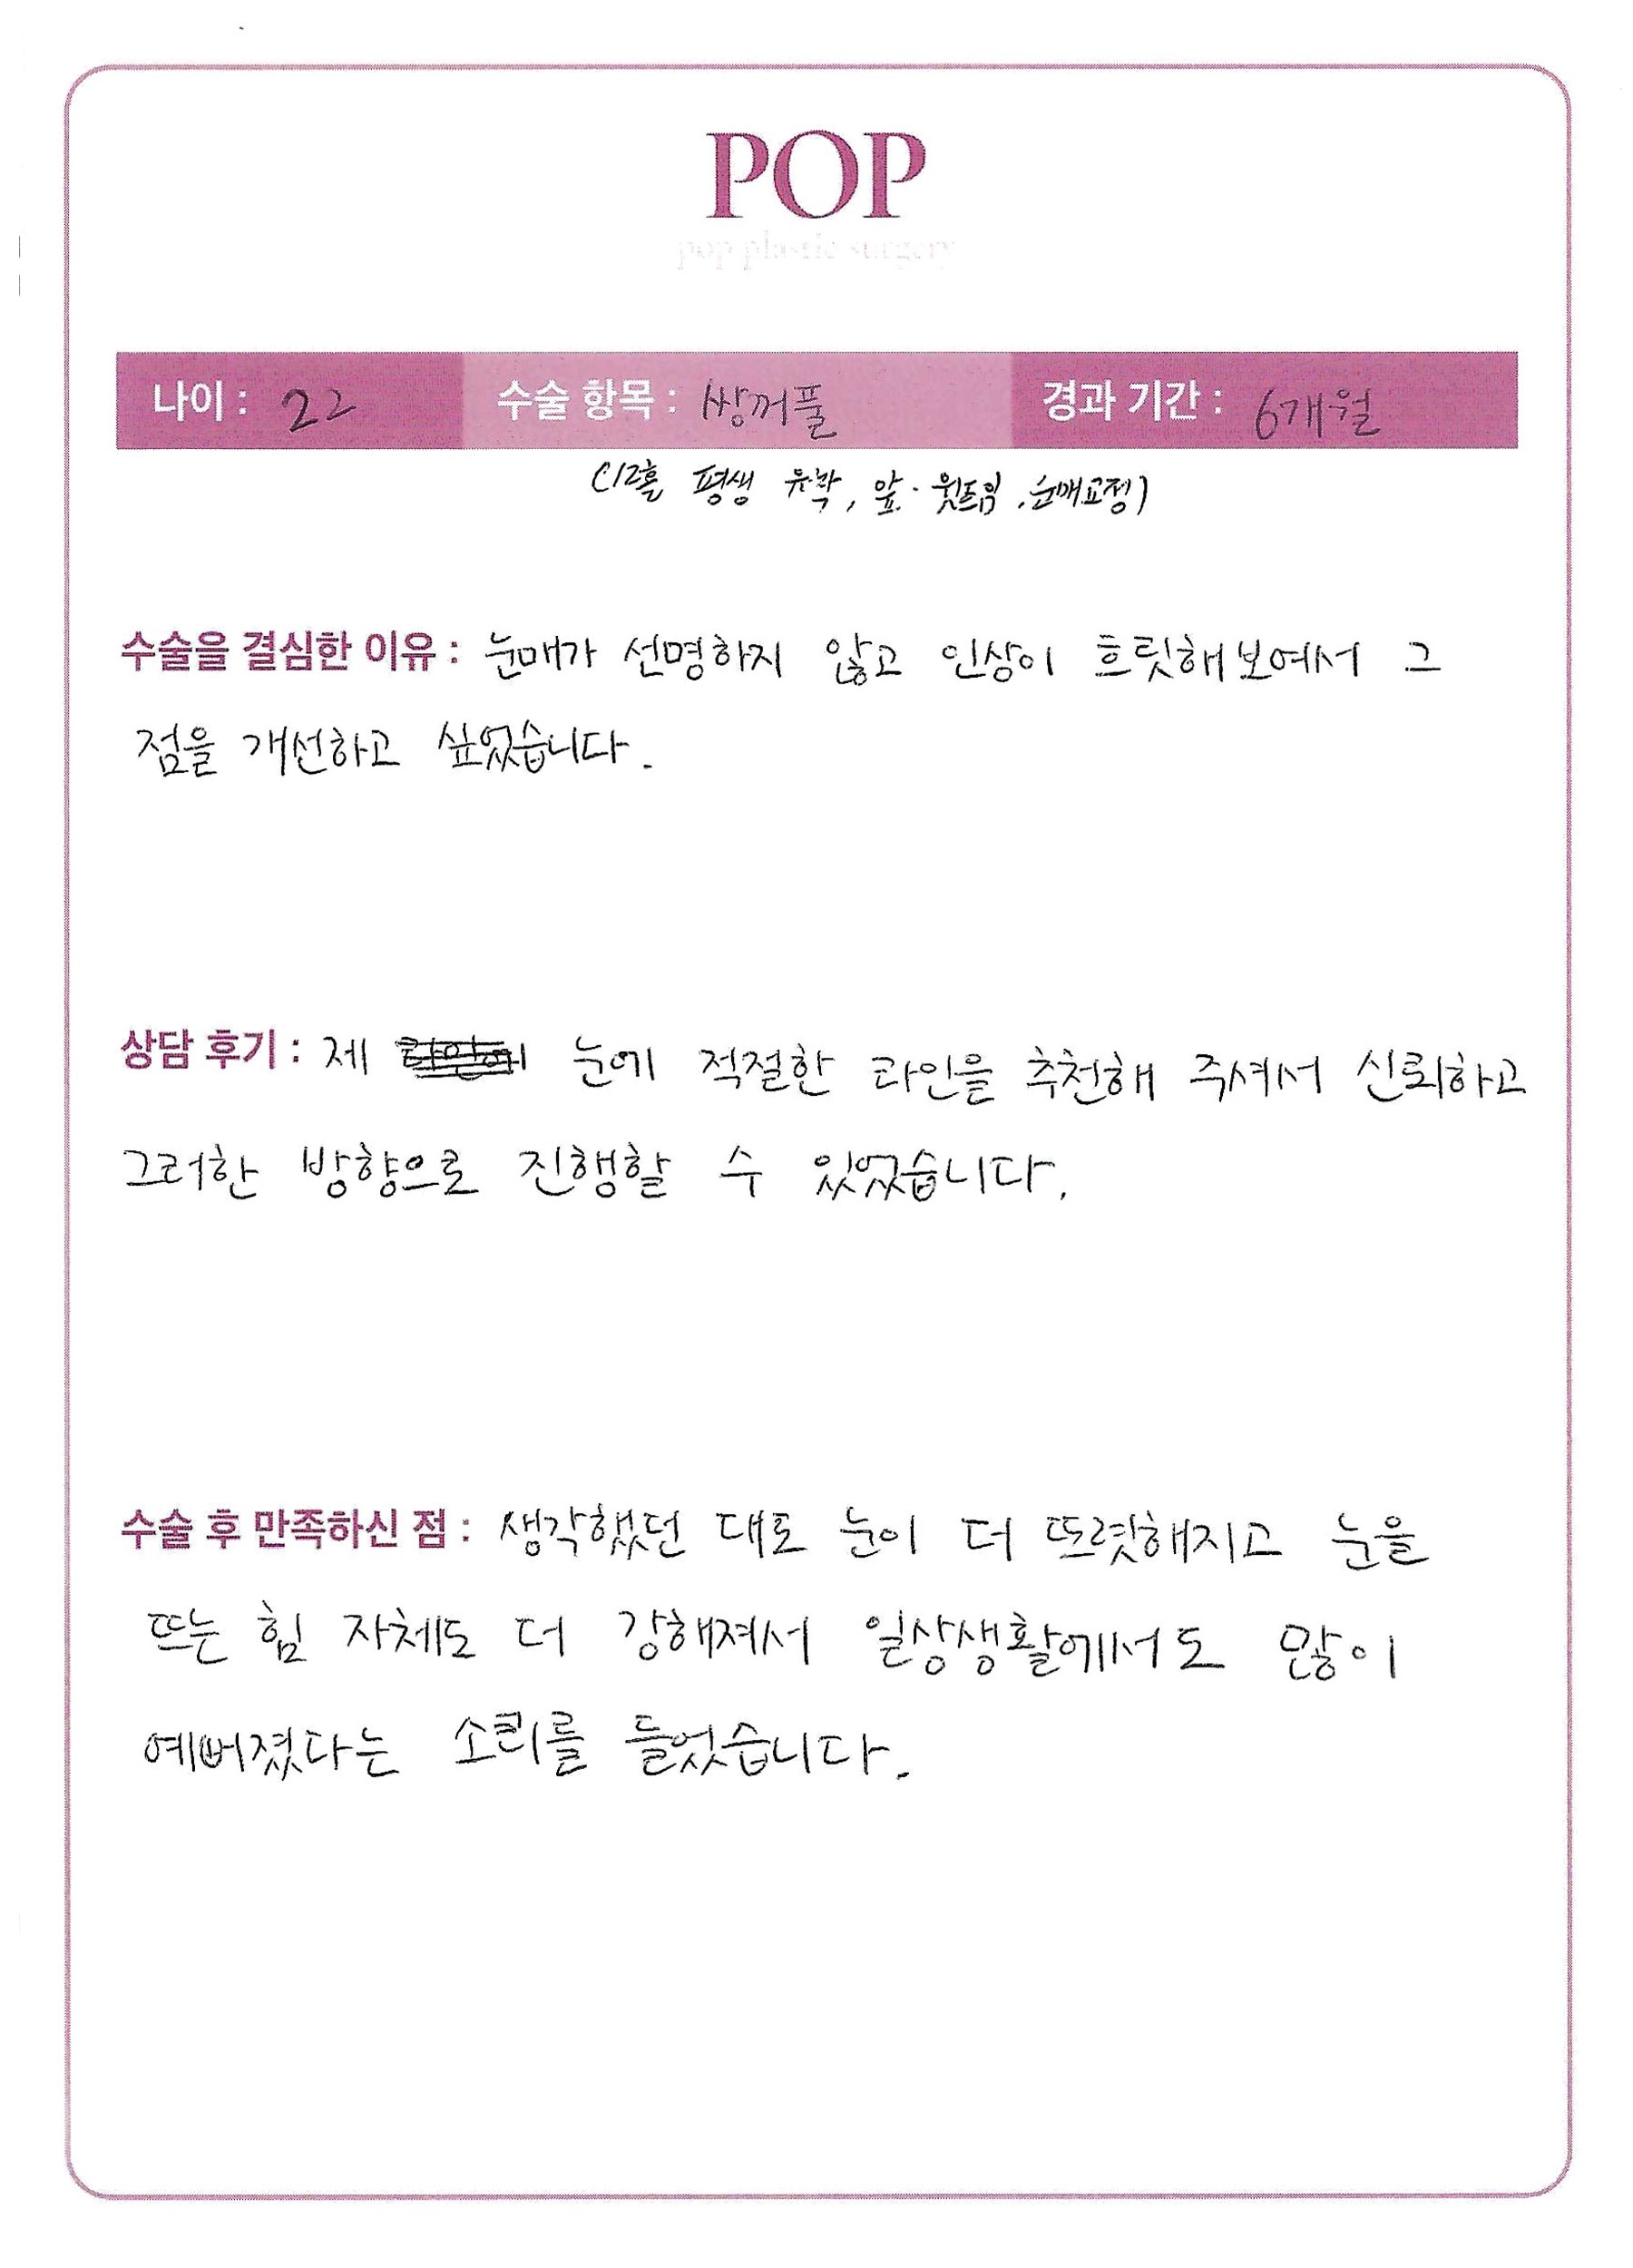 POP
pop plastic surgery
나이 : 22 수술 항목 : 쌍꺼풀 경과 기간 : 6개월
(12홀 평생 유착, 앞·윗트임, 눈매교정)
수술을 결심한 이유 : 눈매가 선명하지 않고 인상이 흐릿해보여서 그
점을 개선하고 싶었습니다.
상담 후기 : 제 눈에 적절한 라인을 추천해 주셔서 신뢰하고
그러한 방향으로 진행할 수 있었습니다.
수술 후 만족하신 점 : 생각했던 대로 눈이 더 또렷해지고 눈을
뜨는 힘 자체도 더 강해져서 일상생활에서도 많이
예뻐졌다는 소리를 들었습니다.